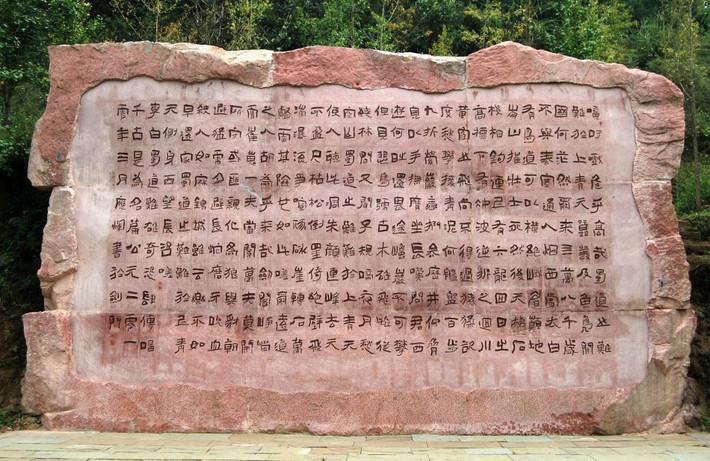 噫吁戲危乎高哉蜀道之難
難於上青天蠶叢及魚鳧開
國何茫然爾來四萬八千歲
不與秦塞通人煙西當太白
有鳥道可以橫絕峨眉巔地
崩山摧壯士死然後天梯石
棧相鉤連上有六龍回日之
高標下有衝波逆折之回川
黃鶴之飛尚不得過猿猱欲
度愁攀援青泥何盤盤百步
九折縈巖巒捫參歷井仰脅
息以手撫膺坐長歎問君西
遊何時還畏途巉巖不可攀
但見悲鳥號古木雄飛雌從
繞林間又聞子規啼夜月愁
空山蜀道之難難於上青天
使人聽此凋朱顏連峰去天
不盈尺枯松倒掛倚絕壁飛
湍瀑流爭喧豗砯崖轉石萬
壑雷其險也如此嗟爾遠道
之人胡為乎來哉劍閣崢嶸
而崔嵬一夫當關萬夫莫開
所守或匪親化為狼與豺朝
避猛虎夕避長蛇磨牙吮血
殺人如麻錦城雖云樂不如
早還家蜀道之難難於上青
天側身西望長咨嗟
李白蜀道難雄奇恣肆傳唱
千古為名篇公元二零一
零年三月應爛書於劍門